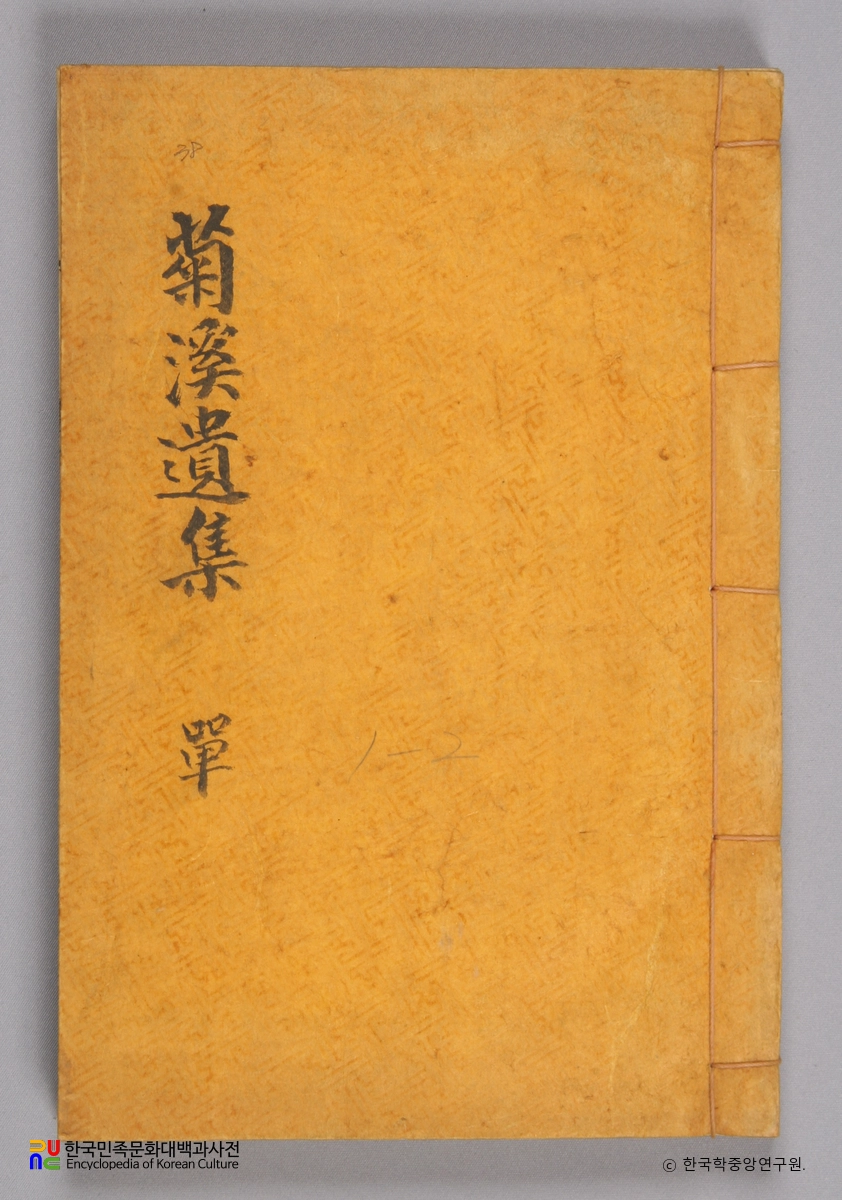 38
菊溪遺集
單
1-2
한국민족문화대백과사전
Encyclopedia of Korean Culture
ⓒ 한국학중앙연구원.